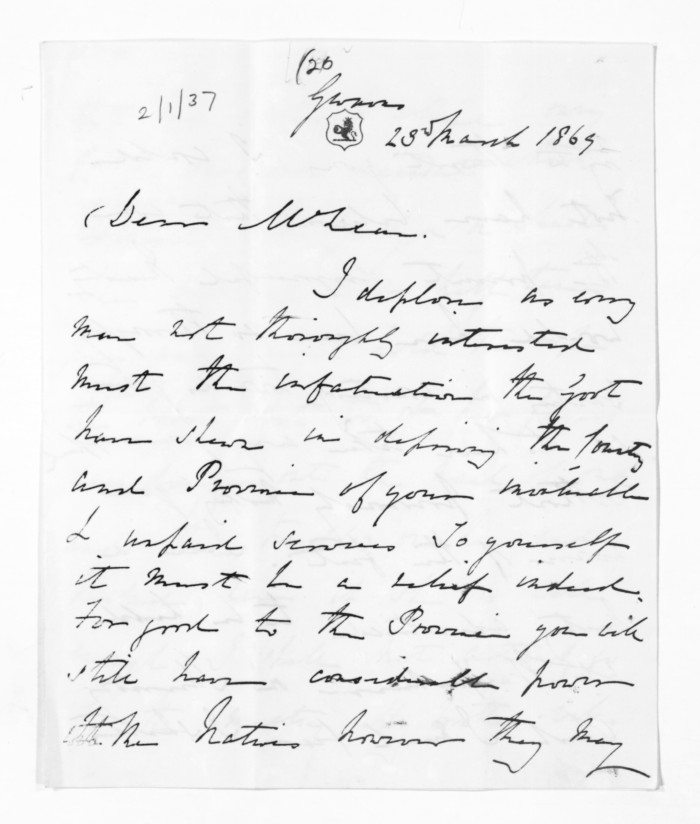 (20
2/1/37
23rd March 1869
Dear McLean.
I deplore as every
man not thoroughly interested
must the infatuation the Govt
have shewn in depriving the Country
and Province of your invaluable
& unpaid services To yourself
it must be a relief indeed.
For good to the Province you will
still have considerable power
with the Natives however they may